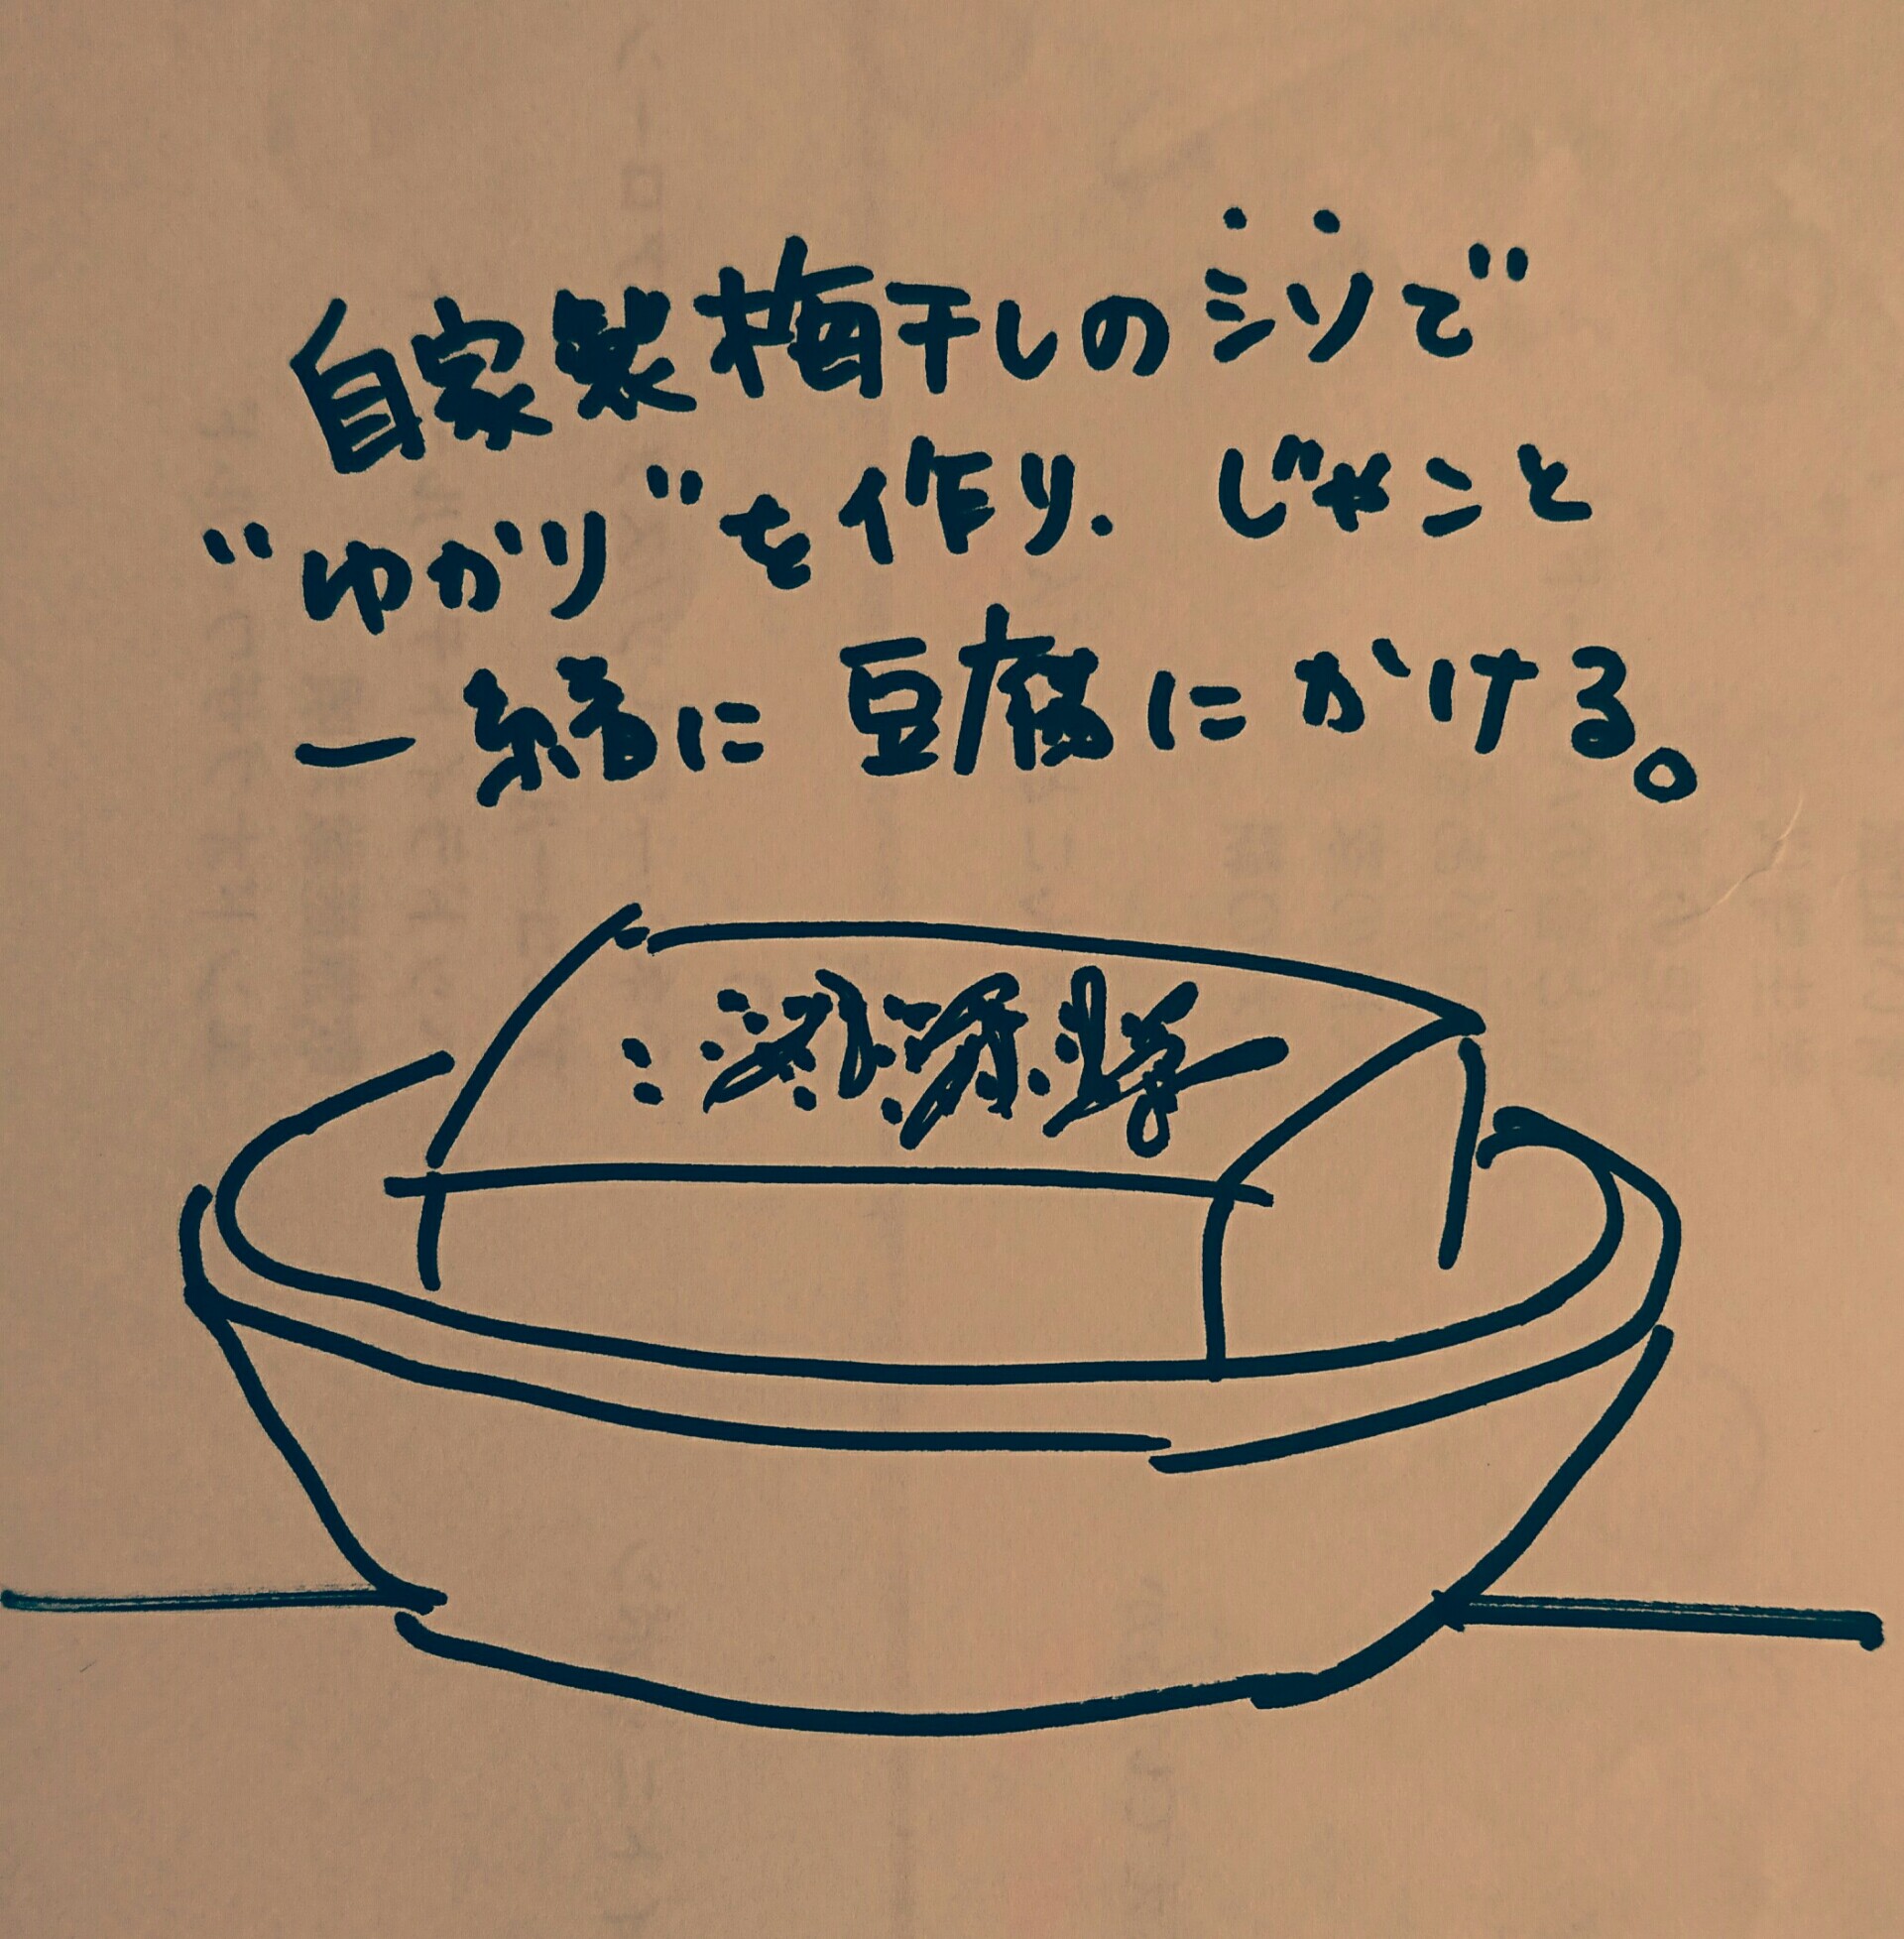 自家製梅干しのシソで
"ゆかり"を作り、じゃこと
一緒に豆腐にかける。